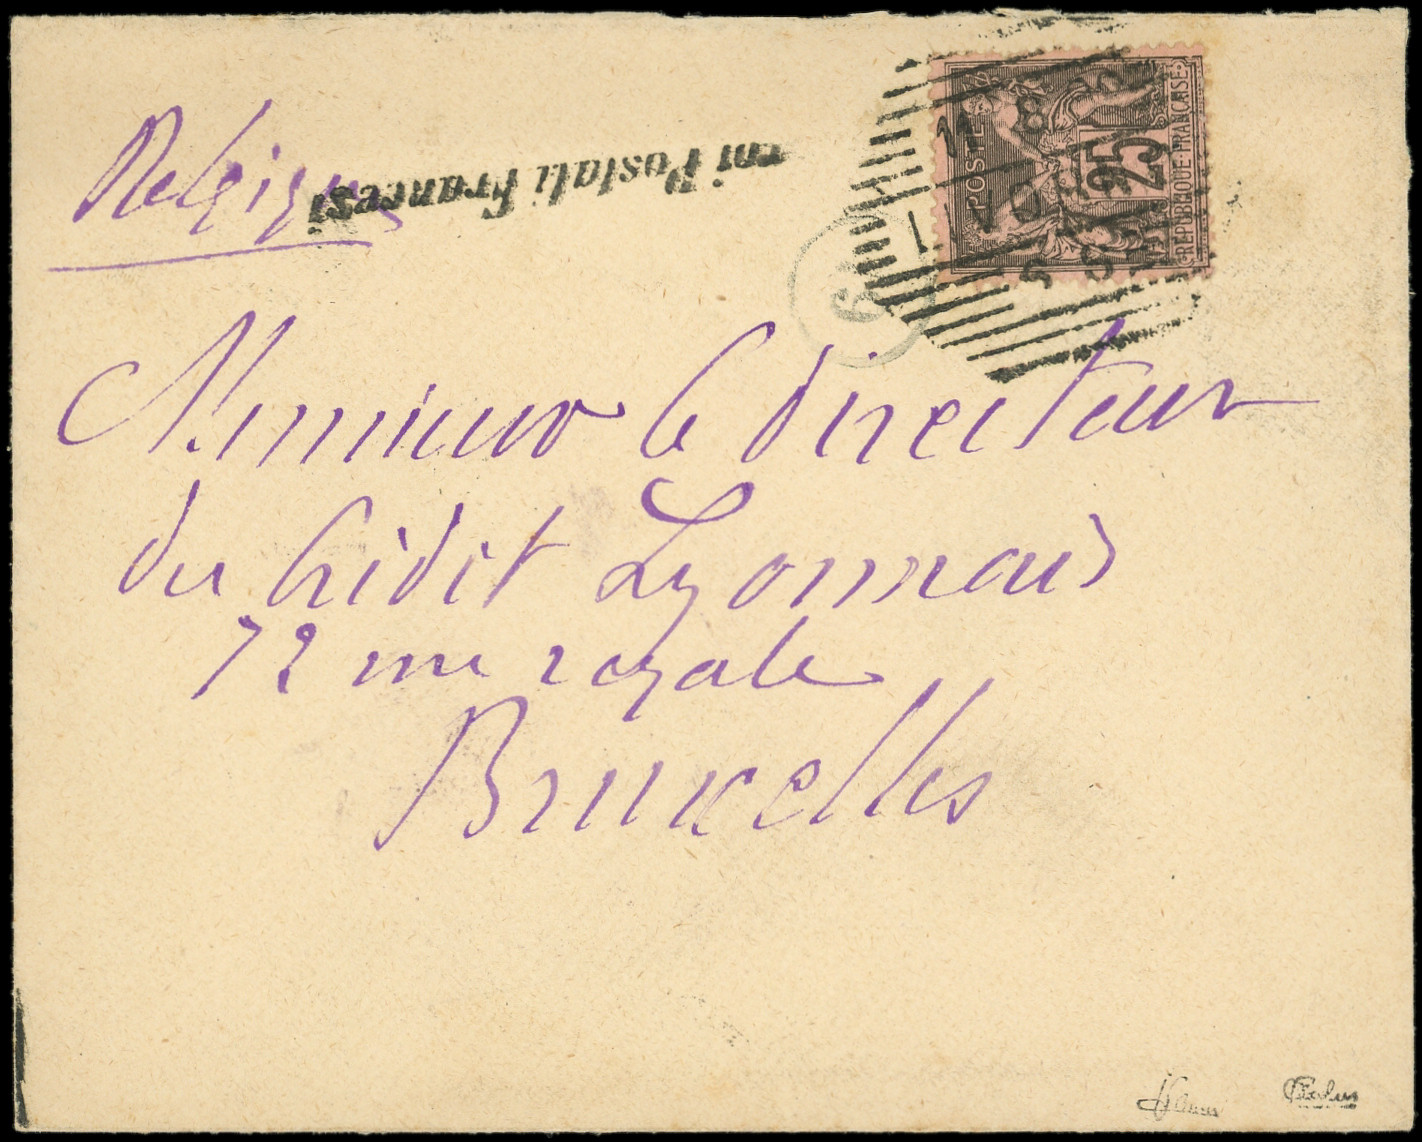 Belgique
emi Postali francesi
POSTE
25
REPUBLIQUE FRANÇAISE
9
Monsieur le directeur
du Crédit Lyonnais
72 rue royale
Bruxelles